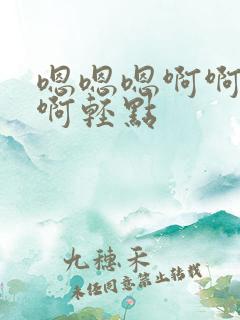 嗯嗯嗯啊啊
啊轻點
九穗禾
未经同意禁止转载